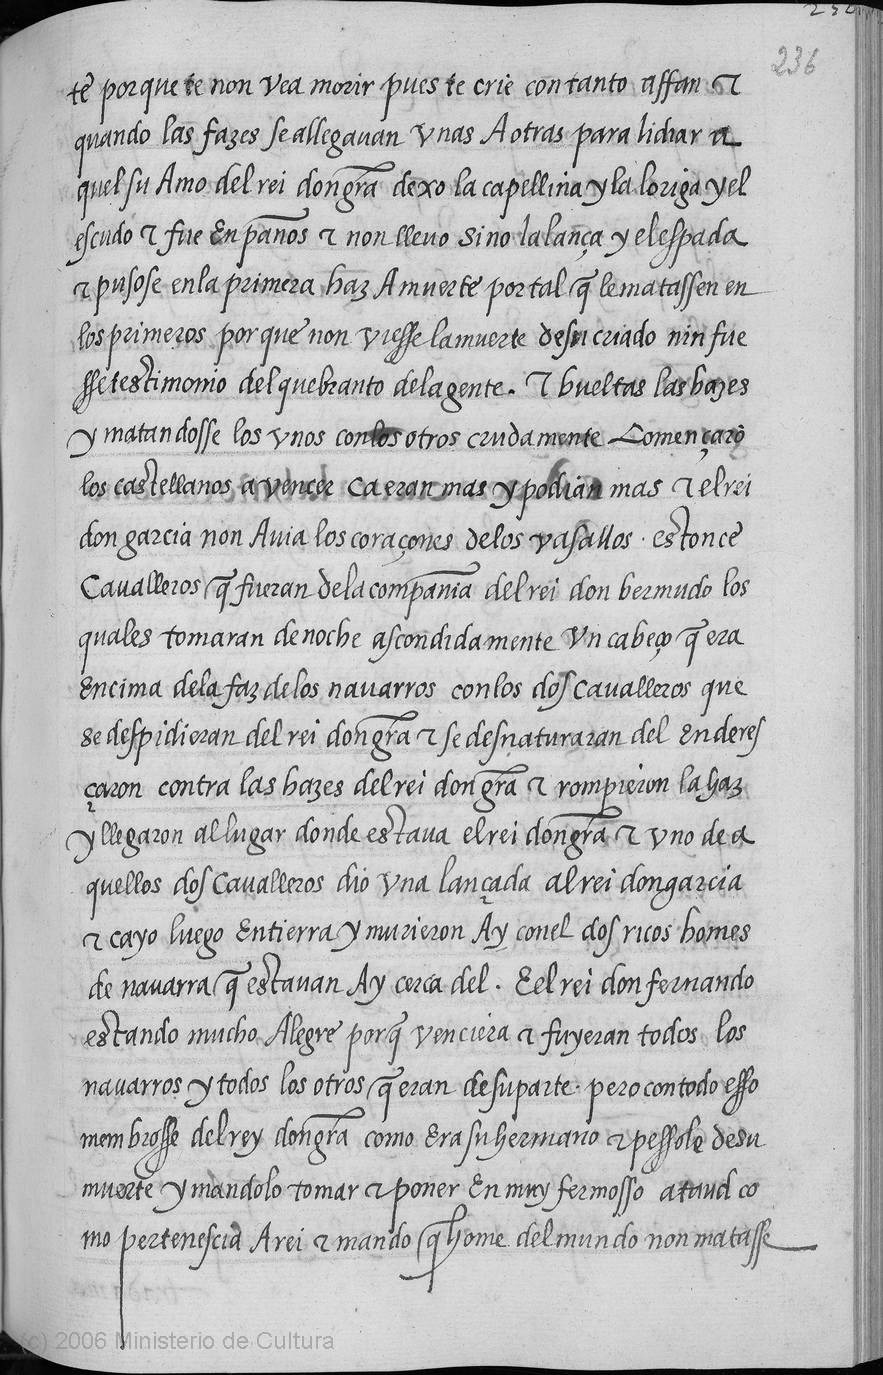 236
te porque te non vea morir pues te crie con tanto affan ⁊
quando las fazes se allegauan vnas A otras para lidiar a
quel su Amo del rei don gr̃a dexo la capellina y la loriga y el
escudo ⁊ fue En pãnos ⁊ non lleuo sino la lança y el espada
⁊ pusose en la primera haz A muerte por tal q̃ le matassen en
los primeros por que non viesse la muerte de su criado nin fue
sse testimonio del quebranto de la gente. ⁊ bueltas las hazes
y matandosse los vnos con los otros crudamente Començarõ
los castellanos a vencer Ca eran mas y podian mas ⁊ el rei
don garcia non Auia los coraçones de los vasallos · estonce
Caualleros q̃ fueran de la compãnia del rei don bermudo los
quales tomaran de noche ascondidamente vn cabeço q̃ era
Encima de la faz de los nauarros con los dos Caualleros que
se despidieran del rei don gr̃a ⁊ se desnaturaran del Enderes
çaron contra las hazes del rei don gr̃a ⁊ rompieron la haz
y llegaron al lugar donde estaua el rei don gr̃a ⁊ vno de a
quellos dos Caualleros dio vna lançada al rei don garcia
⁊ cayo luego En tierra y murieron Ay con el dos ricos homes
de nauarra q̃ estauan Ay cerca del . E el rei don fernando
estando mucho Alegre porq̃ venciera ⁊ fuyeran todos los
nauarros y todos los otros q̃ eran de su parte · pero con todo esso
membrosse del rey don gr̃a como Era su hermano ⁊ pessole de su
muerte y mandolo tomar ⁊ poner En muy fermosso ataud co
mo pertenescia A rei ⁊ mando q̃ home del mundo non matasse
(c) 2006 Ministerio de Cultura